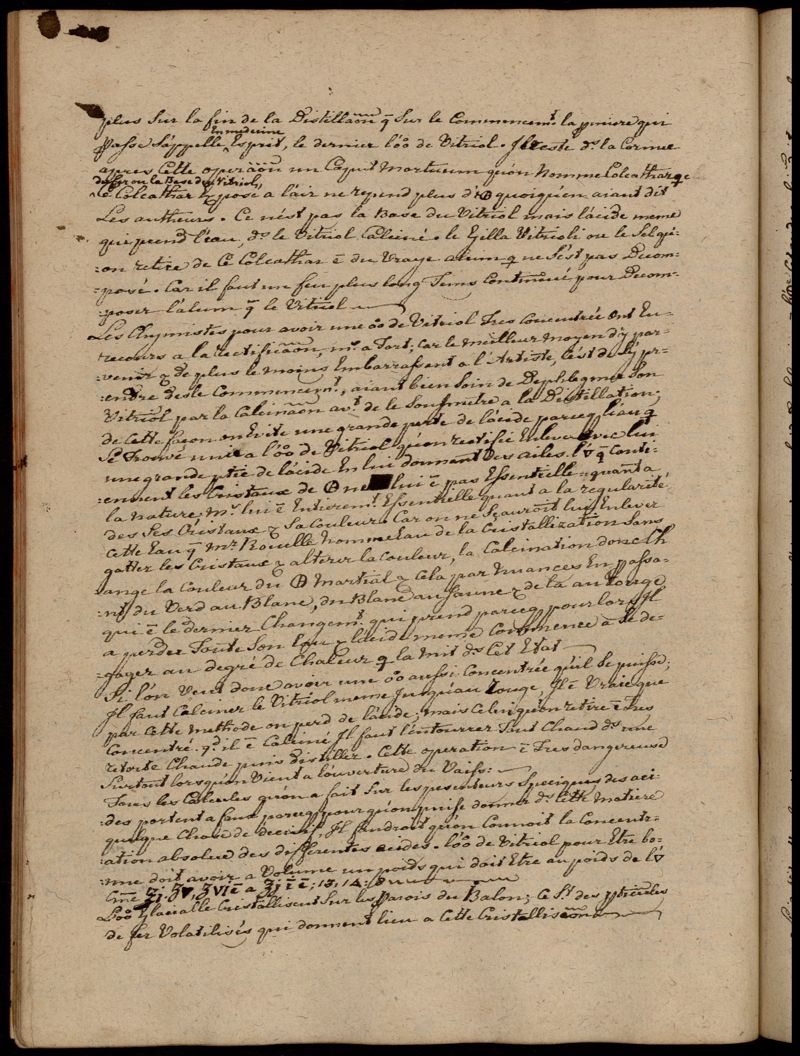 plus Sur la fin de la Distillaõn q̃ Sur le Commencemt. la pmiere qui
En medecine
Passe S'appelle Esprit, le dernier l'oo de Vitriol. Il reste ds. la Cornue
apres Cette operaõn un Caput Mortuum qu'on nomme Colcathar
du fer ou la Base du Vitriol,
Ce Colcathar Exposé a l'air ne repend plus d' quoiqu'en aiant dit
Les autheurs. Ce n'est pas la Base du Vitriol mais l'acide meme
qui prend l'eau, ds. le Vitriol Calciné. le Gilla Vitrioli ou le Sel qu'-
-on retire de Ce Colcathar ẽ du Vraye alum q̃ ne S'est pas Decom-
-posé. Car il faut un feu plus long Tems Continué pour Decom-
-poser l'alum q̃ le Vitriol
Les Chymistes pour avoir une oo de Vitriol Tres Concentrée ont Eu
recours a la rectificaõn, ms. a Tort; Car le meilleur moyen d'y par-
-venir & de plus le moins Embarrassant a l'Artiste, C'est de S'y pr-
-endre des le Commencemt., aiant bien Soin de Dephlegmer Son
Vitriol par la Calcinaõn avt. de le Soumettre a la Distillation;
de Cette façon on Evite une grande perte de l'acide parceq l'eau q̃
Se Trouve unie a l'oo de Vitriol qu'on rectifie Enleve avec lui
une grande ptie de l'acide En lui donnant Des ailes. l'▽ q̃ Conti-
-ennent les Cristaux de ne lui ẽ pas Essentielle quant a
la nature, ms. lui ẽ Entieremt. Essentielle quant a la regularité
des Ses Cristaux & Sa Couleur. Car on ne Sçauroit lui Enlever
Cette Eau q̃ Mr. Rouelle nomme Eau de la Cristallization Sans
gatter les Cristaux & alterer la Couleur, la Calcination donc Ch
ange la Couleur du Martial & Cela par nuances En passa-
-nt du Verd au Blanc, du Blanc au Jaune & de la au rouge
qui ẽ le dernier Changemt. qui prend parceq pour lors Il
a perdu Toute Son Eau & l'acide meme Commence a Se de-
-gager au degré de Chaleur q̃ la mit ds. Cet Etat
Si l'on Veut donc avoir une oo aussi Concentrée qu'il Se puisse;
Il faut Calciner le Vitriol meme Jusqu'au rouge, Il ẽ Vrai que
par Cette methode on perd de l'acide; mais Celui qu'on retire ẽ Tres
Concentré. qd. il ẽ Calciné Il faut l'entourrer Tout Chaud ds. une
retorte Chaude puis distiller. Cette operation ẽ Tres dangereuse
Surtout lorsqu'on Vient a l'ouverture du Vaiss:
Tous les Calcules qu'on a fait Sur les pesenteurs Specifiques des aci-
-des portent a faux parceq pour qu'on puisse donner ds. Cette matiere
quelque Chose de decisif, Il faudroit qu'on Connoit la Concentr-
-ation absolue des differentes acides. l'oo de Vitriol pour Etre bo-
-nne doit avoir a Volume un poids qui doit Etre au poids de l'▽
L'oo Glacialle Cristallisent Sur les Parois du Balon; Ce St. des pticules
de fer Volatilisés qui donnent lieu a Cette Cristallisaõn